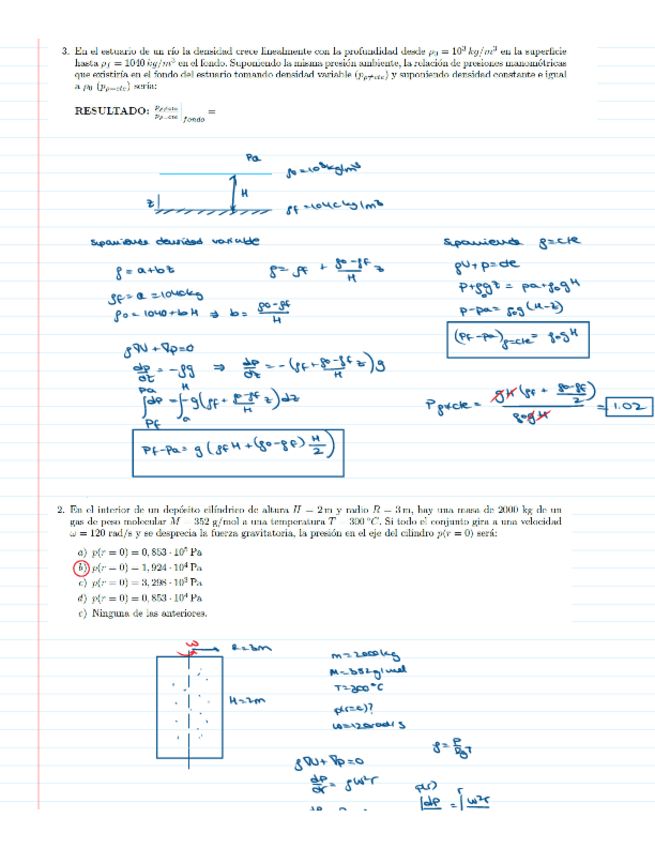 3. En el estuario de un río la densidad crece linealmente con la profundidad desde ρ₀ = 10³ kg/m³ en la superficie
hasta ρf = 1040 kg/m³ en el fondo. Suponiendo la misma presión ambiente, la relación de presiones manométricas
que existiría en el fondo del estuario tomando densidad variable (pρ≠cte) y suponiendo densidad constante e igual
a ρ₀ (pρ=cte) sería:
RESULTADO: pρ≠cte/pρ=cte |fondo =
Pa
ρ₀=10³kg/m³
H
z
ρf=1040kg/m³
Suponiendo densidad variable
ρ=a+bz
ρ=ρf + (ρ₀-ρf)/H z
ρf=a=1040kg
ρ₀=1040+bH ⇒ b= (ρ₀-ρf)/H
ρ∇U+∇p=0
dp/dz = -ρg ⇒ dp/dz = -(ρf+(ρ₀-ρf)/H z)g
∫dp = ∫-g(ρf+(ρ₀-ρf)/H z)dz
Pa
H
Pf
Pf-Pa= g(ρfH+(ρ₀-ρf)H/2)
Suponiendo ρ=cte
ρU+p=cte
P+ρ₀gz = pa+ρ₀gH
P-pa= ρ₀g(H-z)
(Pf-Pa)ρ=cte= ρ₀gH
Pρ≠cte = gH(ρf + (ρ₀-ρf)/2)/ρ₀gH = 1.02
2. En el interior de un depósito cilíndrico de altura H = 2 m y radio R = 3 m, hay una masa de 2000 kg de un
gas de peso molecular M = 352 g/mol a una temperatura T = 300 °C. Si todo el conjunto gira a una velocidad
ω = 120 rad/s y se desprecia la fuerza gravitatoria, la presión en el eje del cilindro p(r = 0) será:
a) p(r = 0) = 0,853 · 10⁵ Pa
b) p(r = 0) = 1,924 · 10⁴ Pa
c) p(r = 0) = 3,298 · 10³ Pa
d) p(r = 0) = 0,853 · 10⁴ Pa
e) Ninguna de las anteriores.
ω
R=3m
H=2m
m=2000kg
M=352g/mol
T=300°C
p(r=0)?
ω=120rad/s
ρ=P/RgT
ρ∇U+∇p=0
dp/dr = ρω²r
∫dp = ∫ω²r